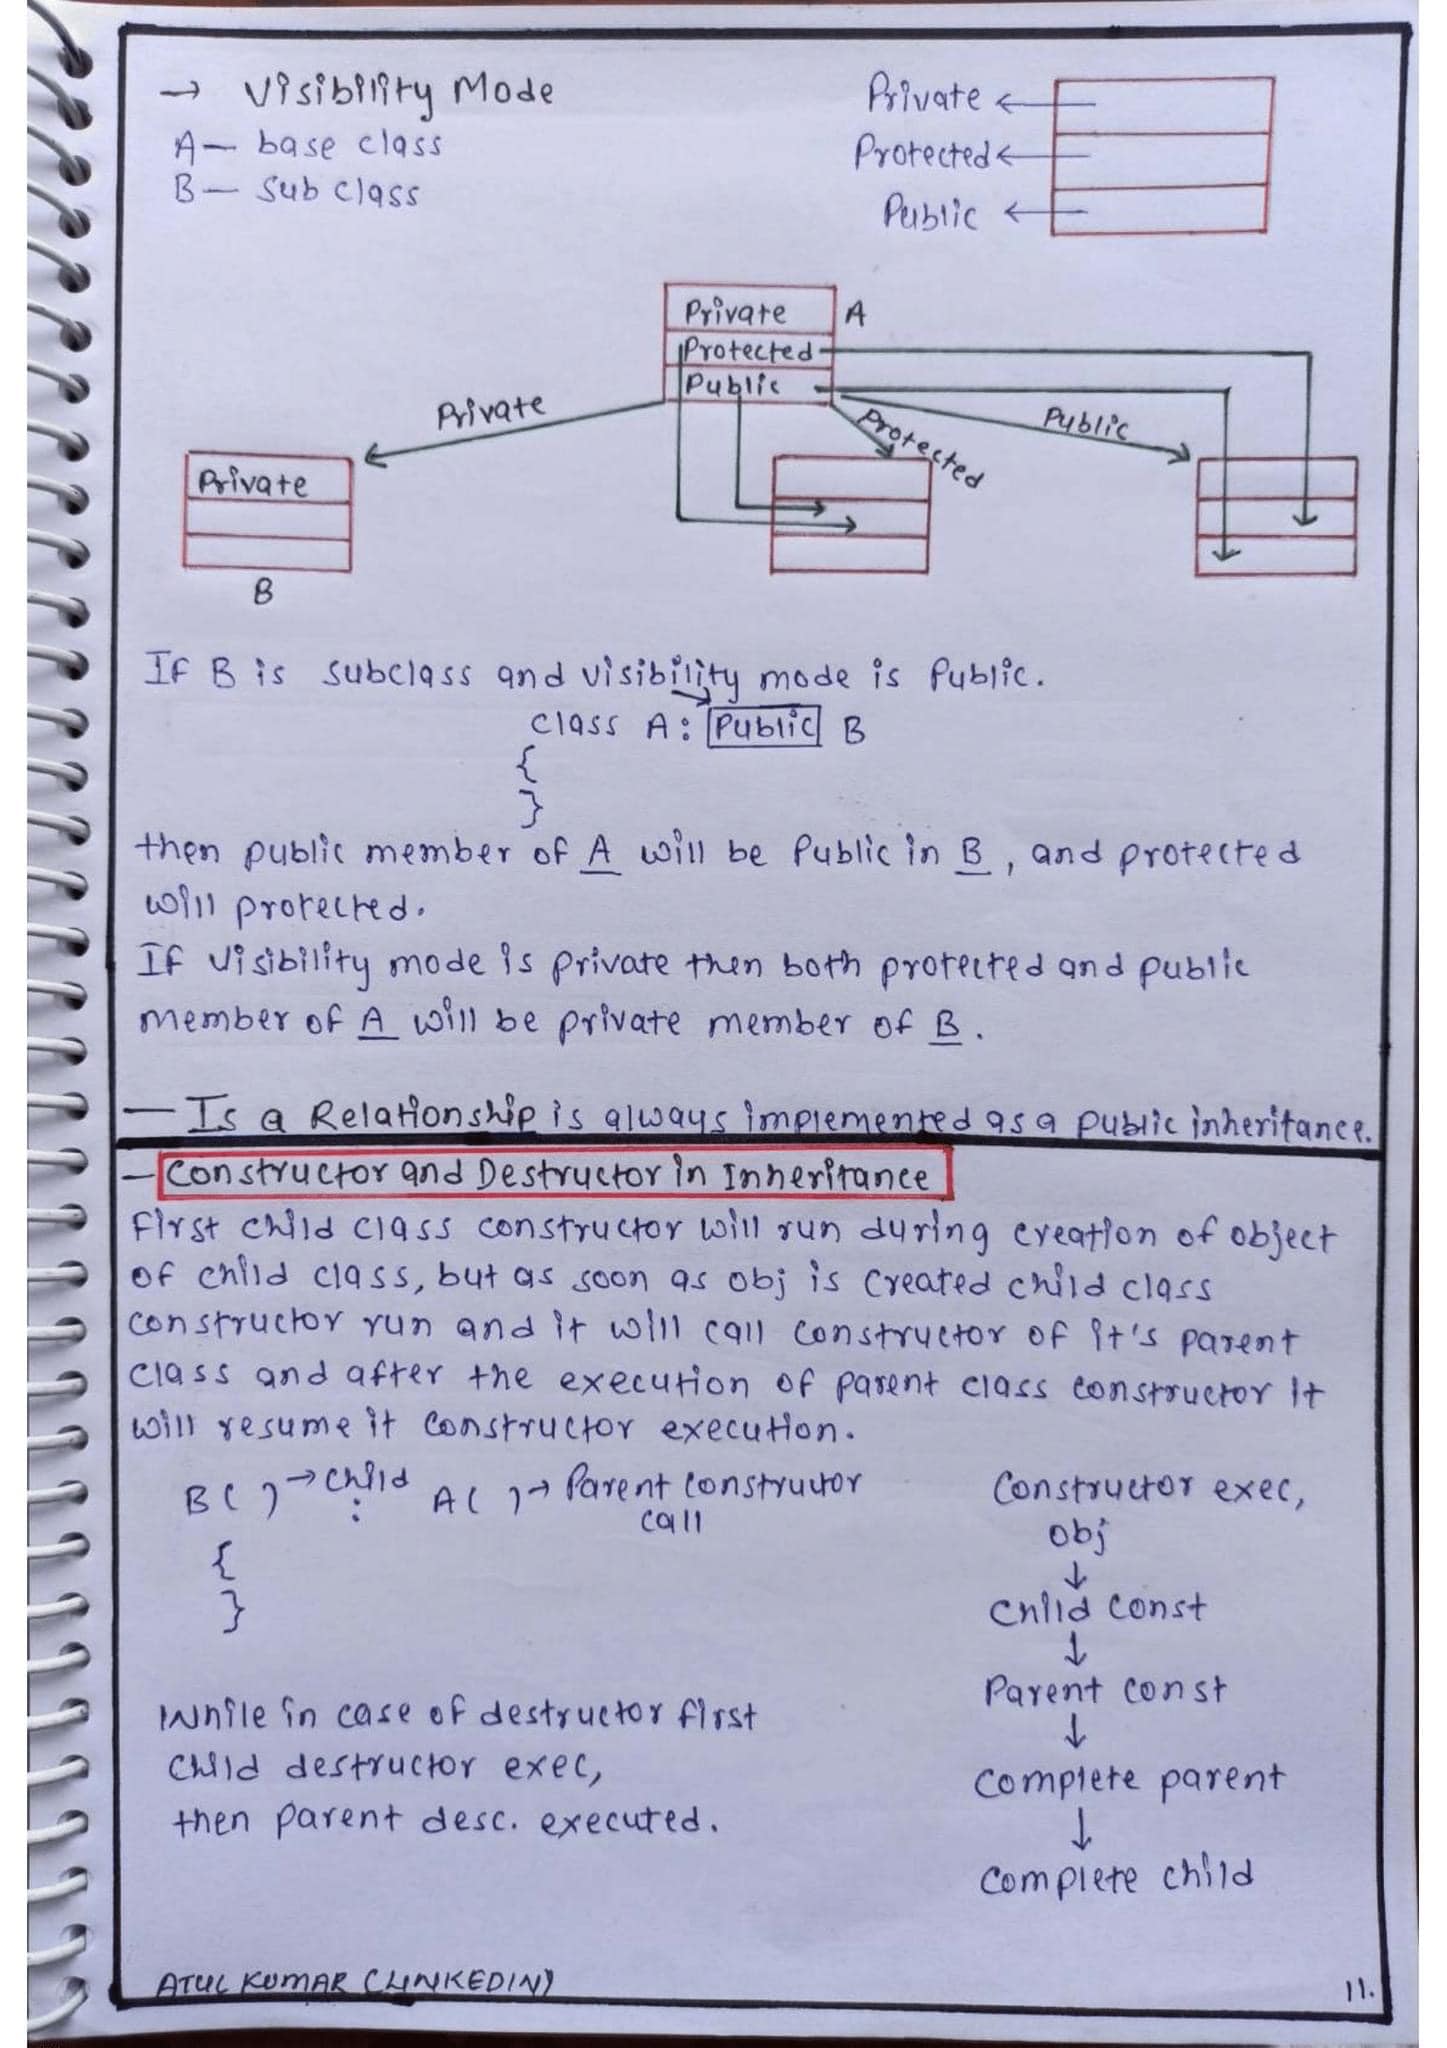 → Visibility Mode
A— base class
B— Sub class
Private ←
Protected ←
Public ←
Private A
Protected
Public
Private
Protected
Public
Private
B
If B is subclass and visibility mode is Public.
class A: Public B
{
}
then public member of A will be Public in B, and protected
will protected.
If visibility mode is private then both protected and public
member of A will be private member of B.
— Is a Relationship is always implemented as a public inheritance.
— Constructor and Destructor in Inheritance
First child class constructor will run during creation of object
of child class, but as soon as obj is created child class
constructor run and it will call constructor of it's parent
class and after the execution of parent class constructor it
will resume it constructor execution.
B( ) → child : A( ) → Parent constructor
call
{
}
While in case of destructor first
child destructor exec,
then parent desc. executed.
Constructor exec,
obj
↓
child const
↓
Parent const
↓
complete parent
↓
complete child
ATUL KUMAR (LINKEDIN)
11.